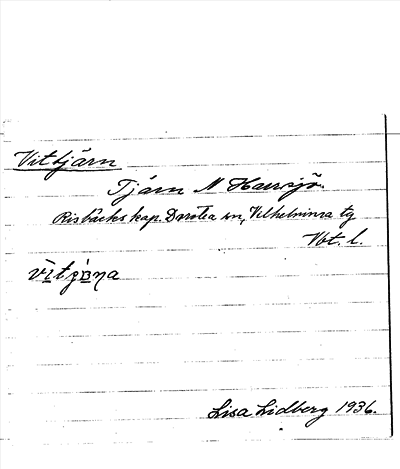 Vittjärn
Tjärn N Harrsjö.
Risbäcks kap. Dorotea sn, Vilhelmina tg
Vbt. l.
Lisa Lidberg 1936.